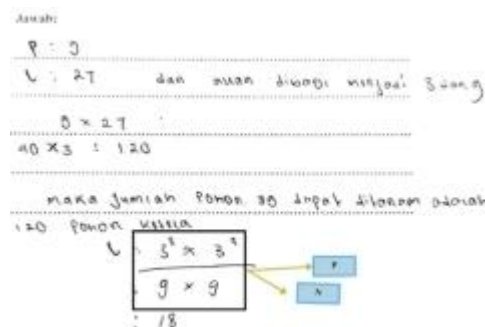 Jawab:
P : 9
L : 27 dan akan dibagi menjadi 3 dan 9
9 × 27 :
40 × 3 : 120
maka jumlah Pohon yg dapat ditanam adalah
120 Pohon kelapa
L : 3⁸ × 3⁹
9 × 9
: 18
P
N